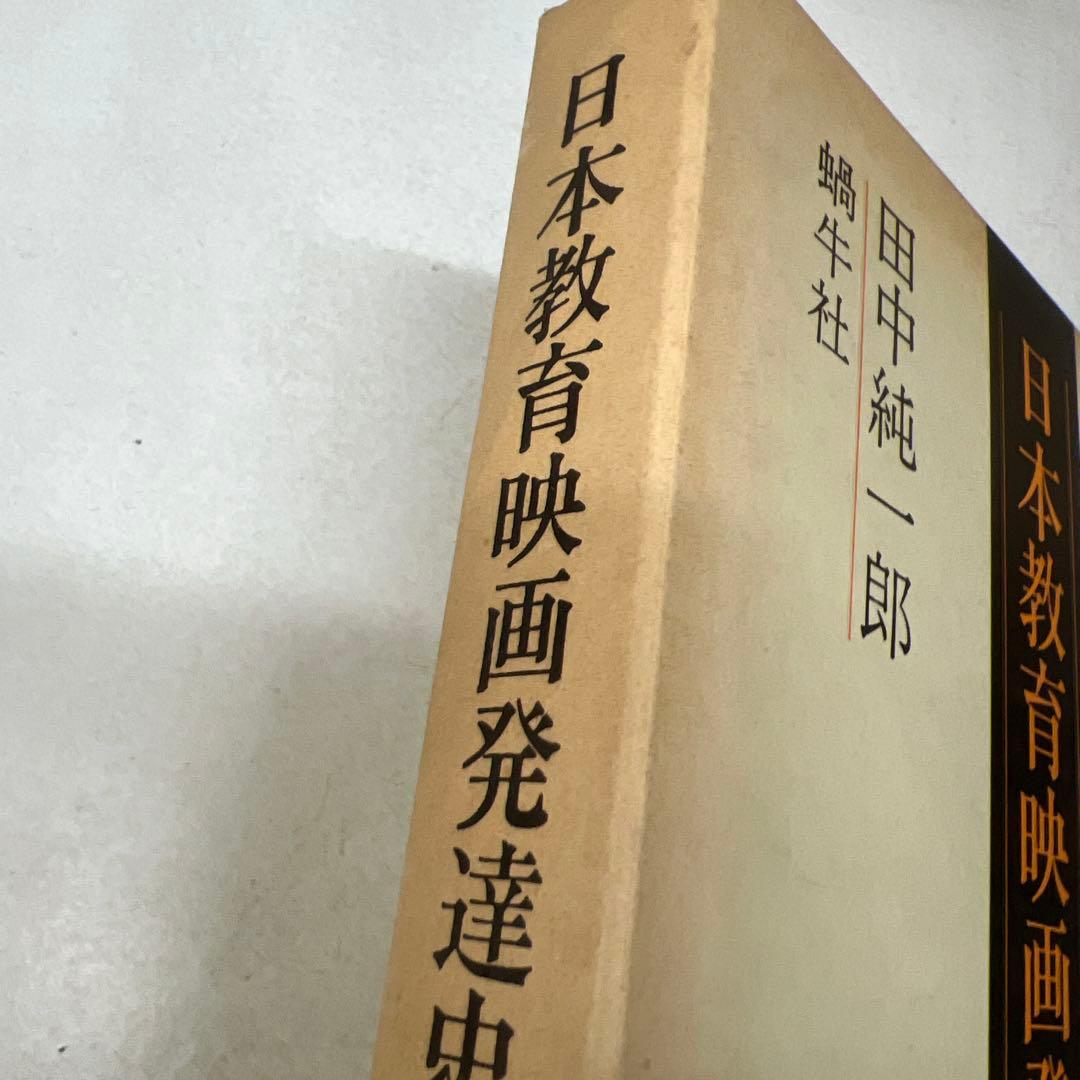 日本教育映画発達史
田中純一郎
蝸牛社
日本教育映画発